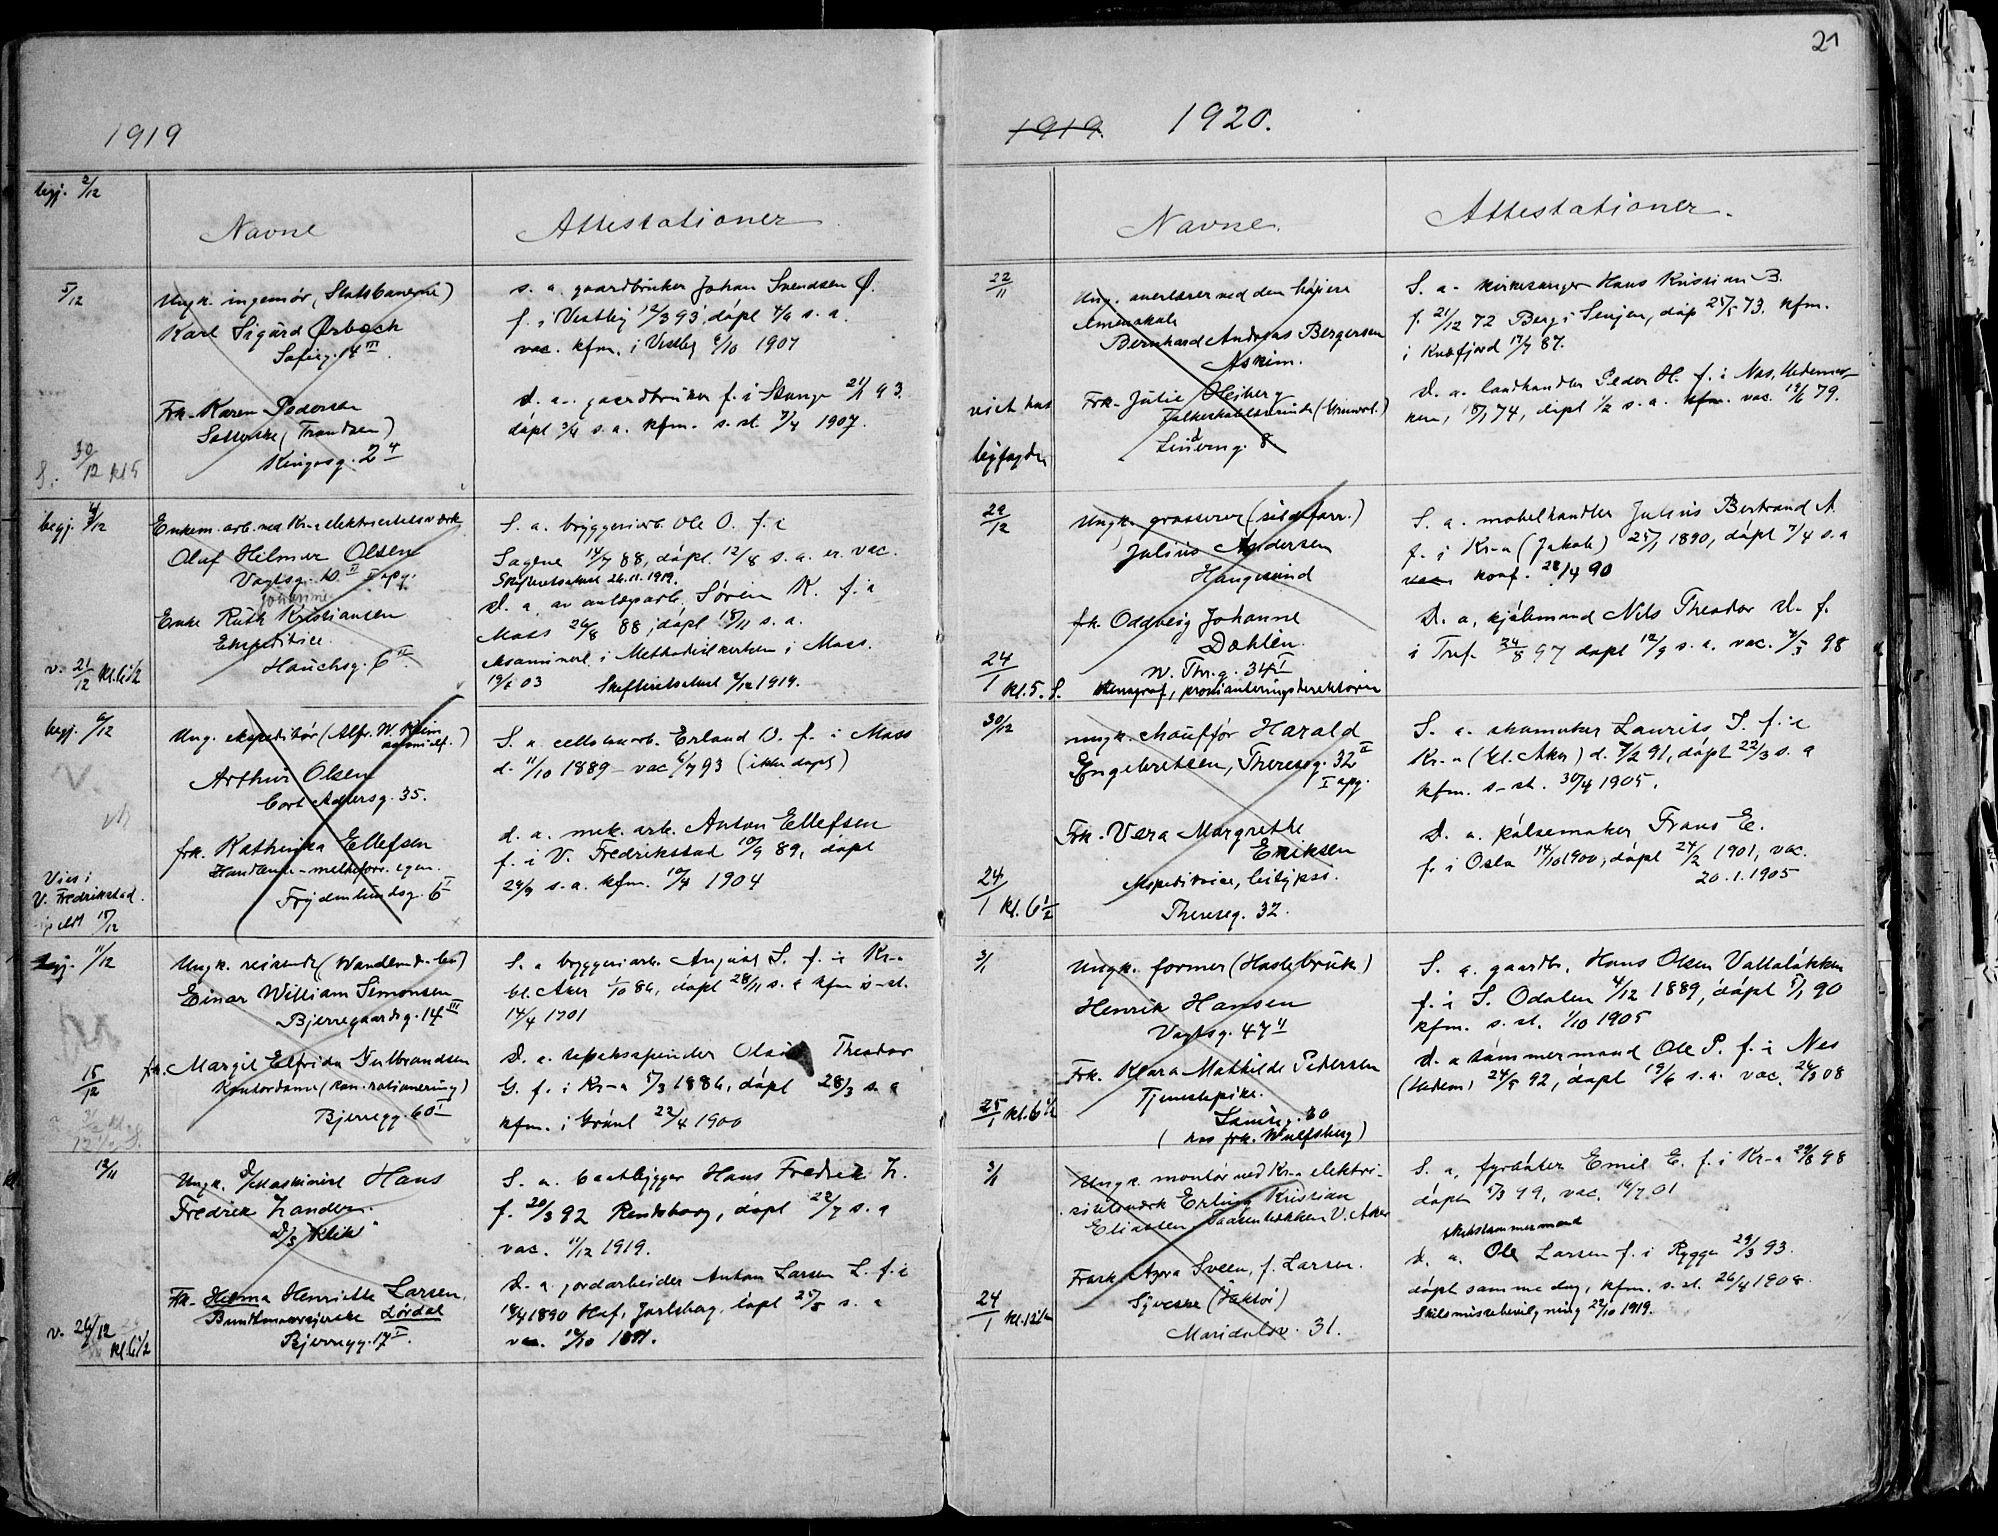 1919
begj. 2/12
Navne
Attestationer
5/12
Ungk. ingeniør, Statsbanerne)
Karl Sigurd Ørbech
Sofieg. 14 III
Frk. Karen Pedersen
Kingosg. 2 4
30/12 kl 5
s. a. gaardbruker Johan Svendsen Ø.
f. i Vestby 12/3 93, døpt 4/9 s. a.
vac. kfm. i Vestby 6/10 1907
d. a. gaardbruker f. i Stange 21/1 93.
døpt 3/4 s. a. kfm. s. st. 7/4 1907.
begj. 4/12
Enkem. arb. ved Kr-a elektricitetsverk
Olaf Helmer Olsen
Vogtsg. 10 II I opg.
Enke Ruth Kristiansen
Ekspeditrice
Hauchsg. 6 II
v. 21/12 kl. 6 1/2
S. a. bryggeriarb. Ole O. f. i
Sagene 14/7 88, døpt 12/8 s. a. er vac.
Skifteretsattest 26.11.1919.
D. a. av anlægsarb. Søren K. f. i
Moss 26/8 88, døpt 18/11 s. a.
Eksaminert i Methodistkirken i Moss.
19/5 03 Skifteretsattest 2/12 1919.
begj. 6/12
Ung. ekspeditør (Alfr. W. Keim
Arthur Olsen
Cort Adlersg. 35.
frk. Kathinka Ellefsen
Handlende - melkeforr. egen.
Frydenlundsg. 6 I
Vies i
V. Fredrikstad.
17/12
S. a. cellulosearb. Erland O. f. i Moss
d. 11/10 1889 - vac 6/7 93 (ikke døpt)
d. a. mek. arb. Anton Ellefsen
f. i V. Fredrikstad 10/9 89, døpt
29/9 s. a. kfm. 10/4 1904
begj. 11/12
Ungk. reisende
Einar William Simonsen
Bjerregaardsg. 14 III
frk. Margit Elfrida Gulbrandsen
Kontordame (kom. rationering)
Bjerregg. 60 I
15/12
S. a. bryggeriarb. August S. f. i Kr-a
Gl. Aker 1/10 86, døpt 28/11 s. a kfm i s-st.
14/4 1901
D. a. tapetserer Theodor
G. f. i Kr-a 5/3 1886, døpt 28/3 s. a
kfm. i Grønl 22/4 1900
12/11
Ungk. d/maskinist Hans
Fredrik Zander
D/S "Klik"
Frk. Helma Henriette Larsen,
Buntmakersyerske Lørdal
Bjerregg. 17 I.
v. 26/12 kl. 6 1/2
S. a. baatbygger Hans Fredrik Z.
f. 20/3 92 Rendsborg, døpt 22/7 s. a
vac. 11/12 1919.
D. a. jordarbeider Anton Larsen L. f. i
18/4 1890 Hof, Jarlsberg, døpt 25/5 s. a
vac. 10/10 1891.
21
1919. 1920.
Navne.
Attestationer.
22/11
Ungk. overlærer ved den høiere
almenskole
Bernhard Andreas Bergersen
Askim.
Frk. Julie Heiberg
Folkeskolelærerinde
Lindeng. 8.
viet hos
byfogden
S. a. kirkesanger Hans Kristian B.
f. 21/12 72 Berg i Senjen, døp 25/5 73. kfm.
i Kvæfjord 17/7 87.
D. a. landhandler Peder H. f. i Nes, Hedemar-
ken, 15/1 74, døpt 1/2 s. a. kfm. vac. 19/6 79.
29/12
Ungk. grosserer (sildeforr.)
Julius Andersen
Haugesund
frk. Oddbjørg Johanne
Dahlen.
W. Thr. g. 34 I
stenograf, provianteringsdirektoriet
24/1 kl. 5. S.
S. a. møbelhandler Julius Bertrand A
f. i Kr-a (Jakob) 25/1 1890, døpt 7/4 s. a
vac. konf. 28/4 90
D. a. kjølemand Nils Theodor D. f.
i Tref. 24/8 97 døpt 12/9 s. a. vac. 7/5 98
30/12
ungk. chauffør Harald
Engebretsen, Thereseg. 32 II
I opg.
Frk. Vera Margrethe
Eriksen
Ekspeditrice,
Thereseg. 32.
24/1 kl. 6 1/2
S. a. skomaker Laurits J. f. i
Kr-a (Gl. Aker) d. 7/2 91, døpt 22/3 s. a
kfm. s-st. 30/4 1905.
D. a. pølsemaker Frans E.
f. i Oslo 14/10 1900, døpt 24/2 1901, vac.
20.1.1905
3/1
Ungk. former (Hasle bruk)
Henrik Hansen
Vogtsg. 47 II
Frk. Klara Mathilde Pedersen
Tjenestepike.
30
(hos frk. Wulfsberg)
25/1 kl. 6 1/2
S. a. gaardb. Hans Olsen Vallaløkken
f. i S. Odalen 4/12 1889, døpt 5/1 90
kfm. s. st. 1/10 1905
d. a tømmermand Ole P. f. i Nes
(Hedem) 24/5 92, døpt 19/6 s. a. vac. 24/3 08
3/1
Ungk. montør ved Kr-a elektri-
sitetsverk Erling Kristian
Eliassen, V. Aker
Frask. Agora Sveen, f. Larsen.
Syerske
Maridalsv. 31.
24/1 kl. 12 1/2
S. a. fyrbøter Emil E. f. i Kr-a 29/8 98
døpt 5/3 99, vac. 16/7 01
skibstømmermand
d. a. Ole Larsen f. i Rygge 29/3 93.
døpt samme dag, kfm. s. st. 26/4 1908.
Skilsmissebevilgning 22/10 1919.